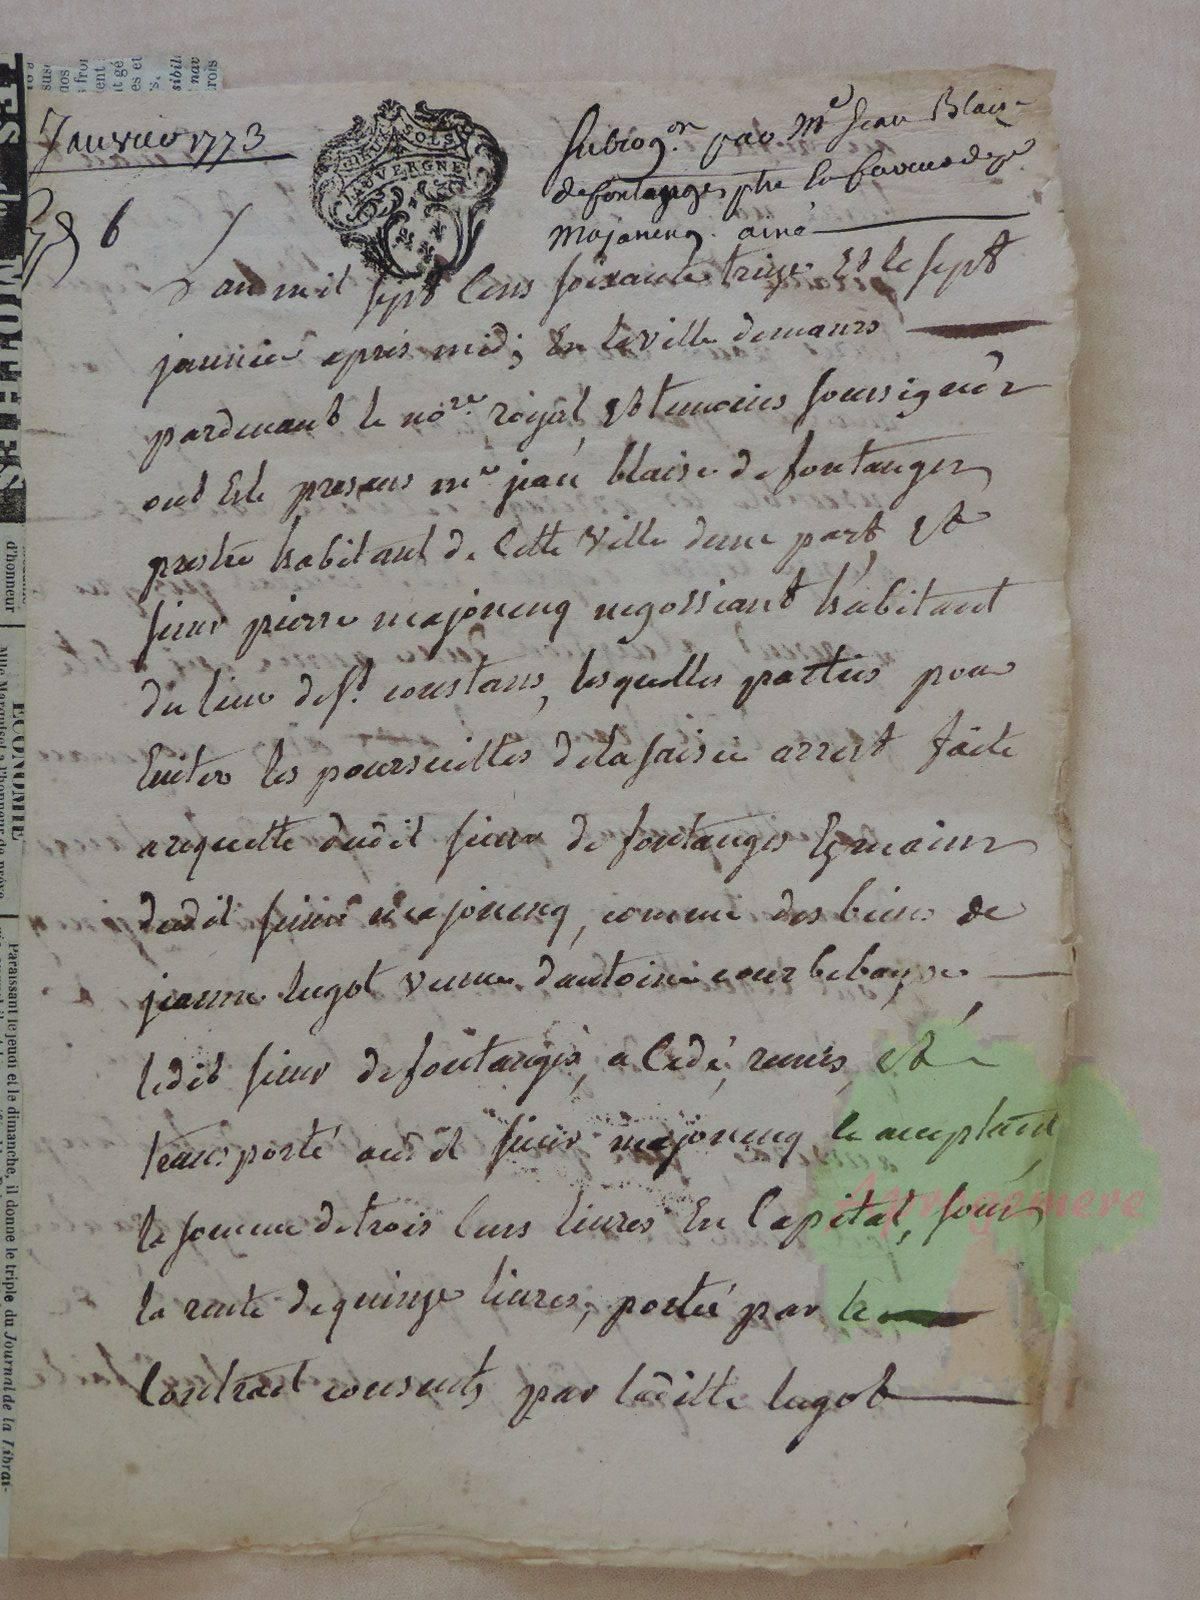 Janvier 1773
6
AUVERGNE
Subrog.on par Me Jean Blaise
de fontanges ptre
Majonenq ainé
L'an mil sept cens soixante treize Et le sept
janvier apres midy En la ville de maurs
pardevant le nore royal et temoins soussignés
ont Esté presens me jean blaise de fontanges
prestre habitant de cette Ville dune part, et
sieur pierre majonenq negossiant habitant
du lieu de st. constans, lesquelles parties pour
Eviter les poursuittes de la saisie arrest faite
a requette dudit sieur de fontanges Es mains
dudit sieur majonenq, comme des biens de
jeanne lugot veuve d'antoine courbebaysse
ledit sieur de fontanges, a cedé, remis et
transporté audit sieur majonenq le acceptant
la somme de trois cens livres En Capital, sous
la rente de quinze livres, portée par le
Contract consenty par laditte lugot
Aprogemere
d'honneur
ÉCONOMIE
Paraissant le jeudi et le dimanche, il donne le triple du Journal de la Librai-